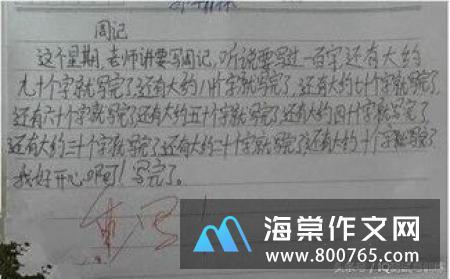 周记
这个星期,老师讲要写周记,听说要写过一百字还有大约
九十个字就写完了还有大约八十个字就写完了,还有大约七十个字就写完了,
还有六十个字就写完了还有大约五十个字就写完了还有大约四十个字就写完了
还有大约三十个字就写完了还有大约二十个字就写完了还有大约十个字就写完了
我好开心啊!写完了。
重写!
海棠作文网
www.800765.com